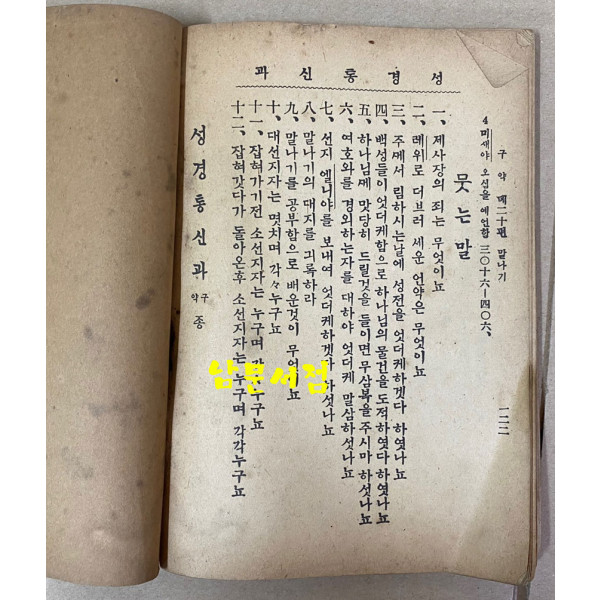 성경통신과
구약 뎨二十편 말나기
一二二
4 미새야 오심을 예언함 三○十六—四○六、
뭇는말
一、제사장의 죄는 무엇이뇨
二、레위로 더브러 세운 언약은 무엇이뇨
三、주께서 림하시는날에 성전을 엇더케하겟다 하엿나뇨
四、백성들이 엇더케함으로 하나님의 물건을 도적하엿다하엿나뇨
五、하나님께 맛당히 드릴것을 들이면 무삼복을 주시마 하섯나뇨
六、여호와를 경외하는자를 대하야 엇더케 말삼하섯나뇨
七、선지 엘니야를 보내여 엇더케하겟다 하섯나뇨
八、말나기의 대지를 긔록하라
九、말나기를 공부함으로 배운것이 무엇
十、대선지자는 몃치며 각々누구뇨
十一、잡혀가기전 소선지자는 누구며 각 누구뇨
十二、잡혀갓다가 돌아온후 소선지자는누구며 각각누구뇨
성경통신과 구약 종
남문서점